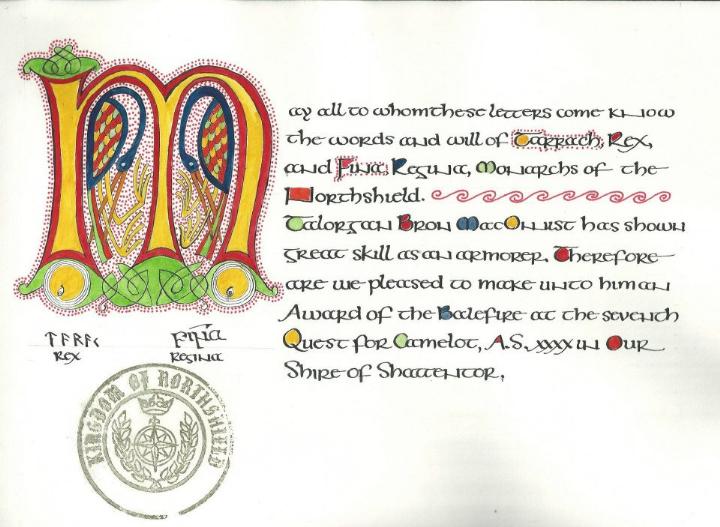 May all to whom these letters come know
the words and will of Tarrach, Rex,
and Fina Regina, Monarchs of the
Northshield.
Talorgan Bron MacOnuist has shown
great skill as an armorer. Therefore
are we pleased to make unto him an
Award of the Balefire at the seventh
Quest for Camelot, A.S. xxxx in Our
Shire of Shattentor.
ᛏᚨᚱᚨᚲ
Rex
Fina
Regina
KINGDOM OF NORTHSHIELD